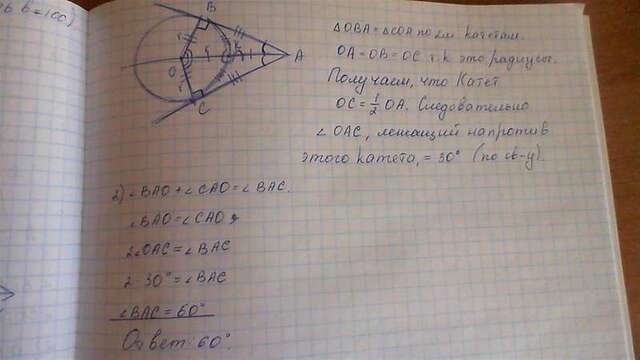 b = 100)
B
r
r
K
A
O
r
C
△ OBA = △ COA по дм катетам.
OA = OB = OC т.к это радиусы.
Получаем, что Катет
OC = 1/2 OA. Следовательно
∠ OAC, лежащий напротив
этого катета, = 30° (по св-у).
2) ∠BAO + ∠CAO = ∠BAC.
∠BAO = ∠CAO
2∠OAC = ∠BAC
2 · 30° = ∠BAC
∠BAC = 60°
Ответ: 60°.